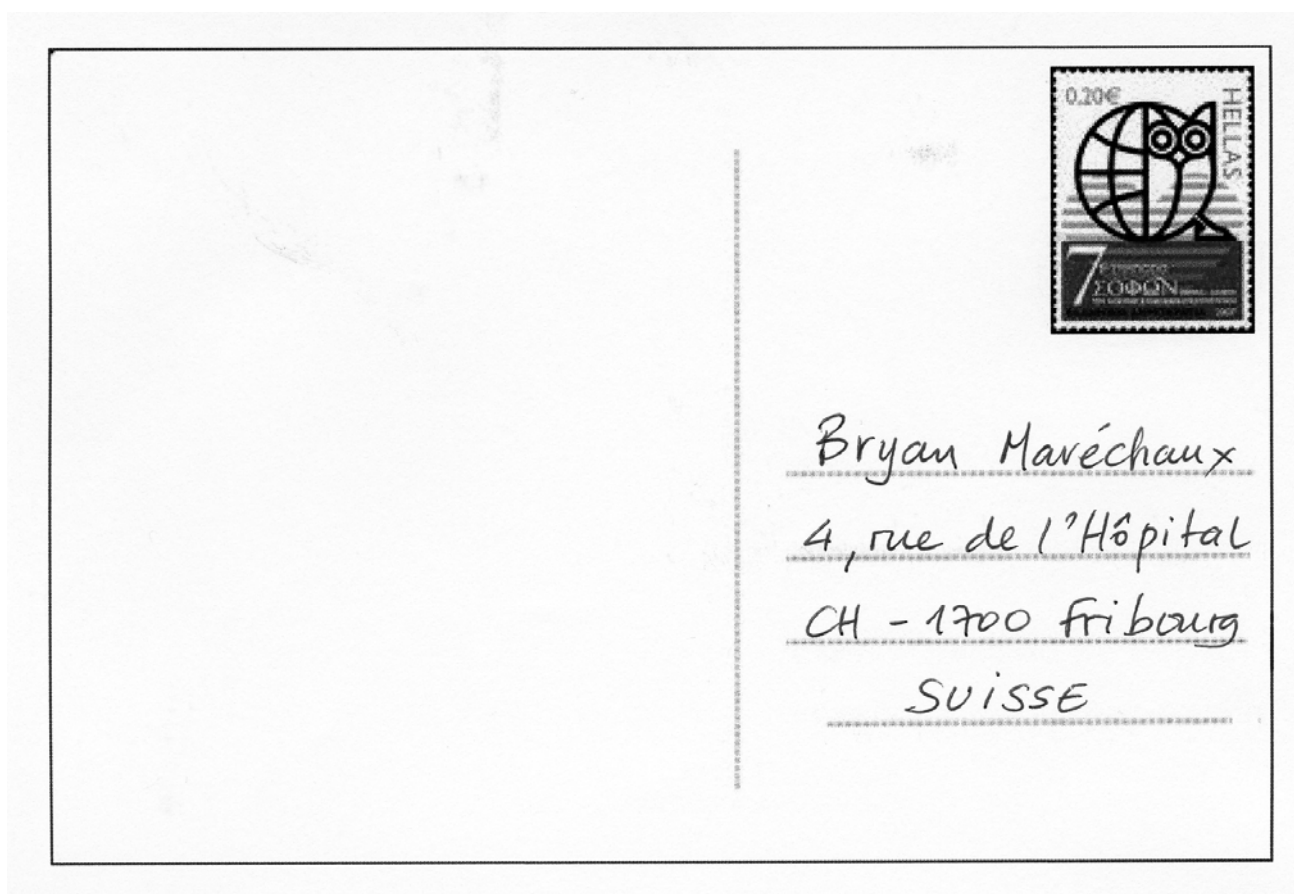 0.20€
HELLAS
7
ΣΟΦΩΝ
Bryan Maréchaux
4, rue de l'Hôpital
CH - 1700 Fribourg
SUISSE